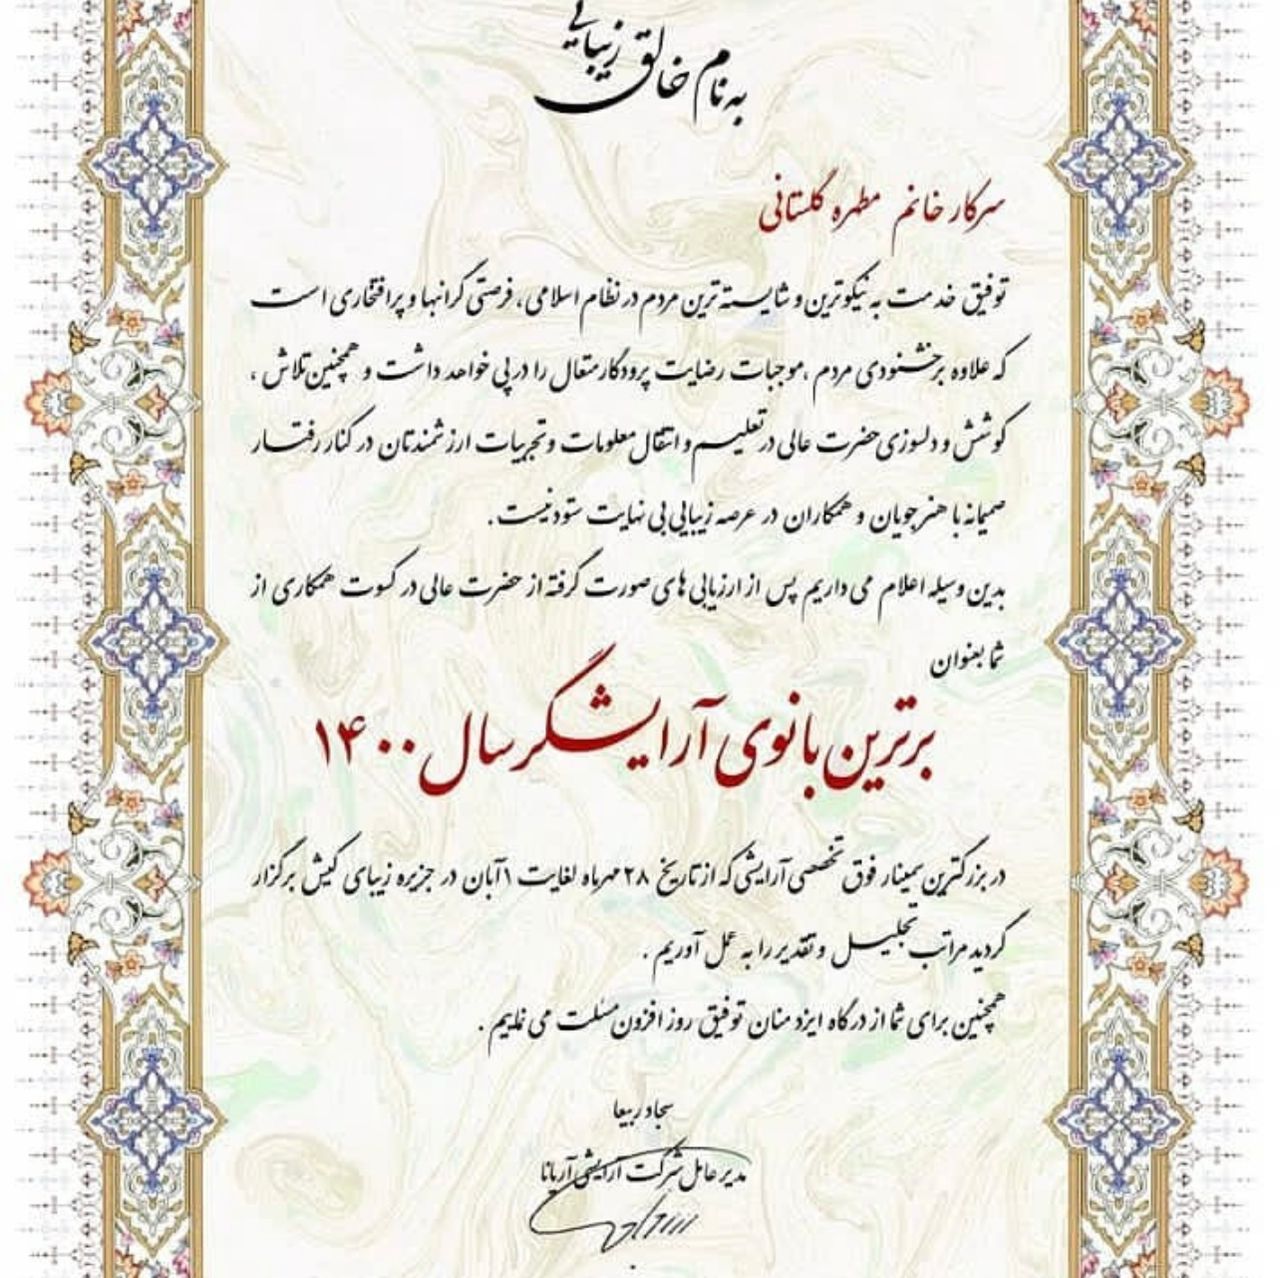 به نام خالق زیبایی
سرکار خانم مطهره گلستانی
توفیق خدمت به نیکوترین و شایسته ترین مردم در نظام اسلامی، فرصتی گرانبها و پرافتخاری است
که علاوه بر خشنودی مردم ،موجبات رضایت پرودگار متعال را در پی خواهد داشت و همچنین تلاش ،
کوشش و دلسوزی حضرت عالی در تعلیم و انتقال معلومات و تجربیات ارزشمندتان در کنار رفتار
صمیمانه با هنرجویان و همکاران در عرصه زیبایی بی نهایت ستودنیست.
بدین وسیله اعلام می داریم پس از ارزیابی های صورت گرفته از حضرت عالی در کسوت همکاری از
شما بعنوان
برترین بانوی آرایشگر سال ۱۴۰۰
در بزرگترین سمینار فوق تخصصی آرایشی که از تاریخ ۲۸ مهرماه لغایت ۱ آبان در جزیره زیبای کیش برگزار
گردید مراتب تجلیل و تقدیر را به عمل آوریم .
همچنین برای شما از درگاه ایزد منان توفیق روز افزون مسئلت می نماییم .
سجاد ربیعا
مدیر عامل شرکت آرایشی آریانا